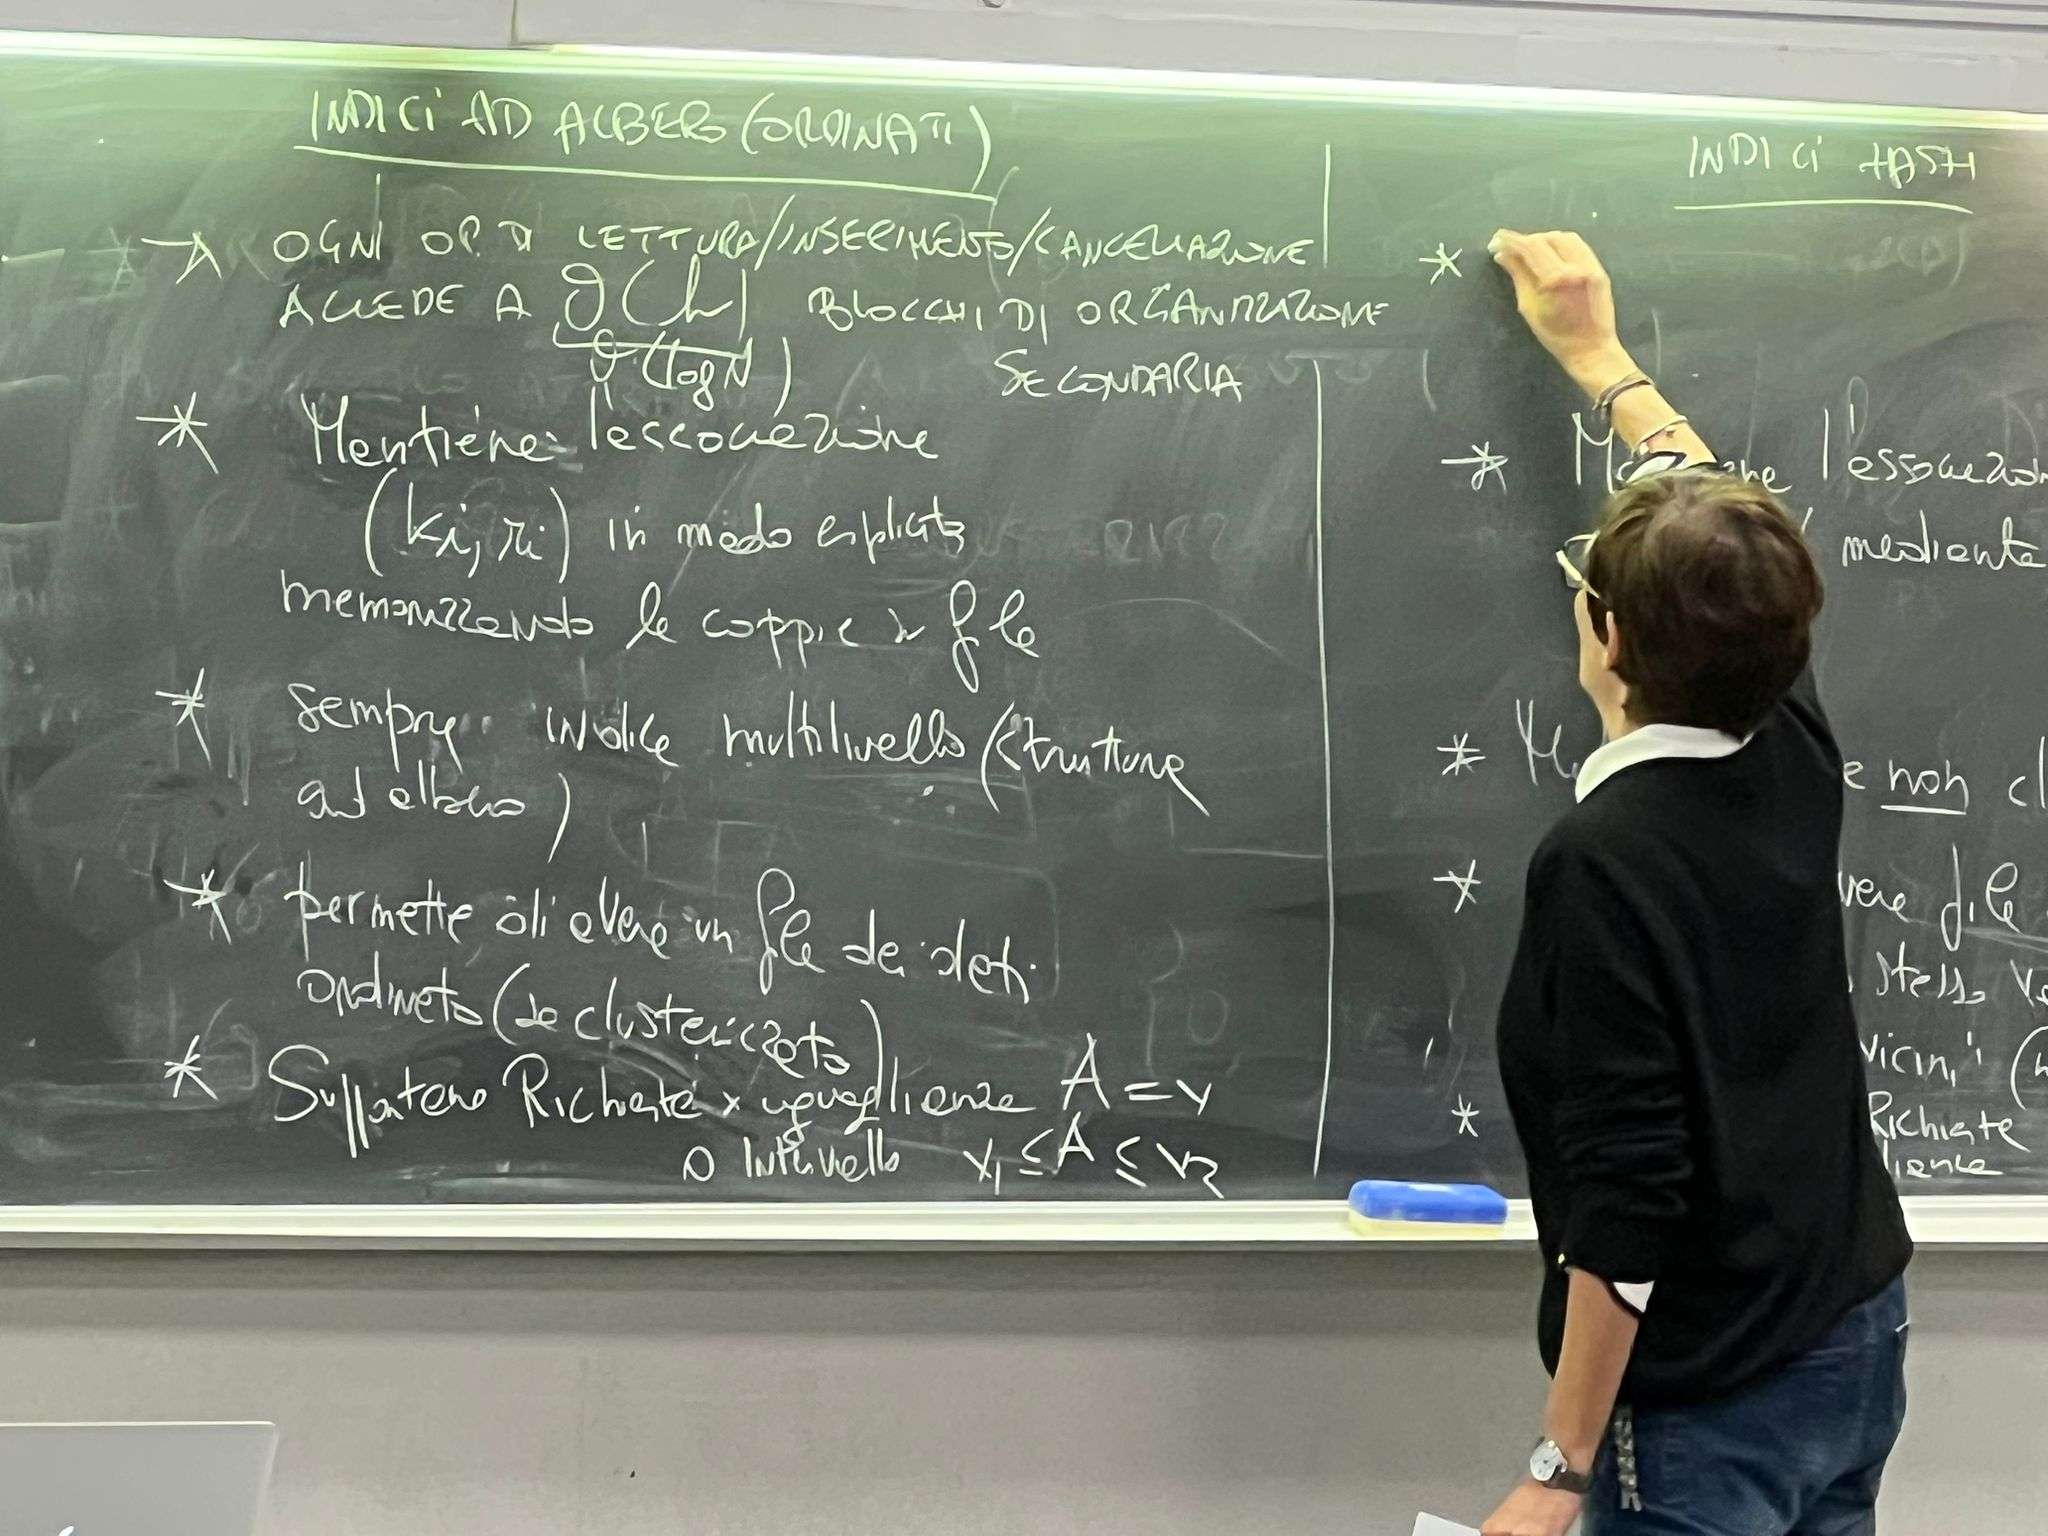 INDICI AD ALBERO (ORDINATI)
OGNI OP. DI LETTURA/INSERIMENTO/CANCELLAZIONE
ACCEDE A O(h) BLOCCHI DI ORGANIZZAZIONE
O(logN) SECONDARIA
* Mantiene l'associazione
(ki, ri) in modo esplicito
memorizzando le coppie su file
* sempre indice multilivello (struttura
ad albero)
* permette di avere un file dei dati
ordinato (se clusterizzato)
* Supportano Richieste x uguaglianza A = v
o Intervallo v1 ≤ A ≤ v2
INDICI HASH
*
* l'associazione
mediante
* non cl
* vere file
stesso
vicini (
* Richieste